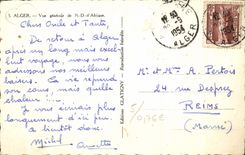 1. ALGER. - Vue générale de N.-D. d'Afrique.
Chers Oncle et Tante,
De retour à Alger
après un long mais excel-
lent voyage, nous vous
adressons nos meilleurs
La vie reprend
son cours, mais quelle
chaleur!
Je vous écrirai plus
longuement d'ici peu.
à bientôt donc.
Michel Annette
ALGER
1954
M. et Mme A. Pertois
24 rue Desprez
REIMS
(Marne)